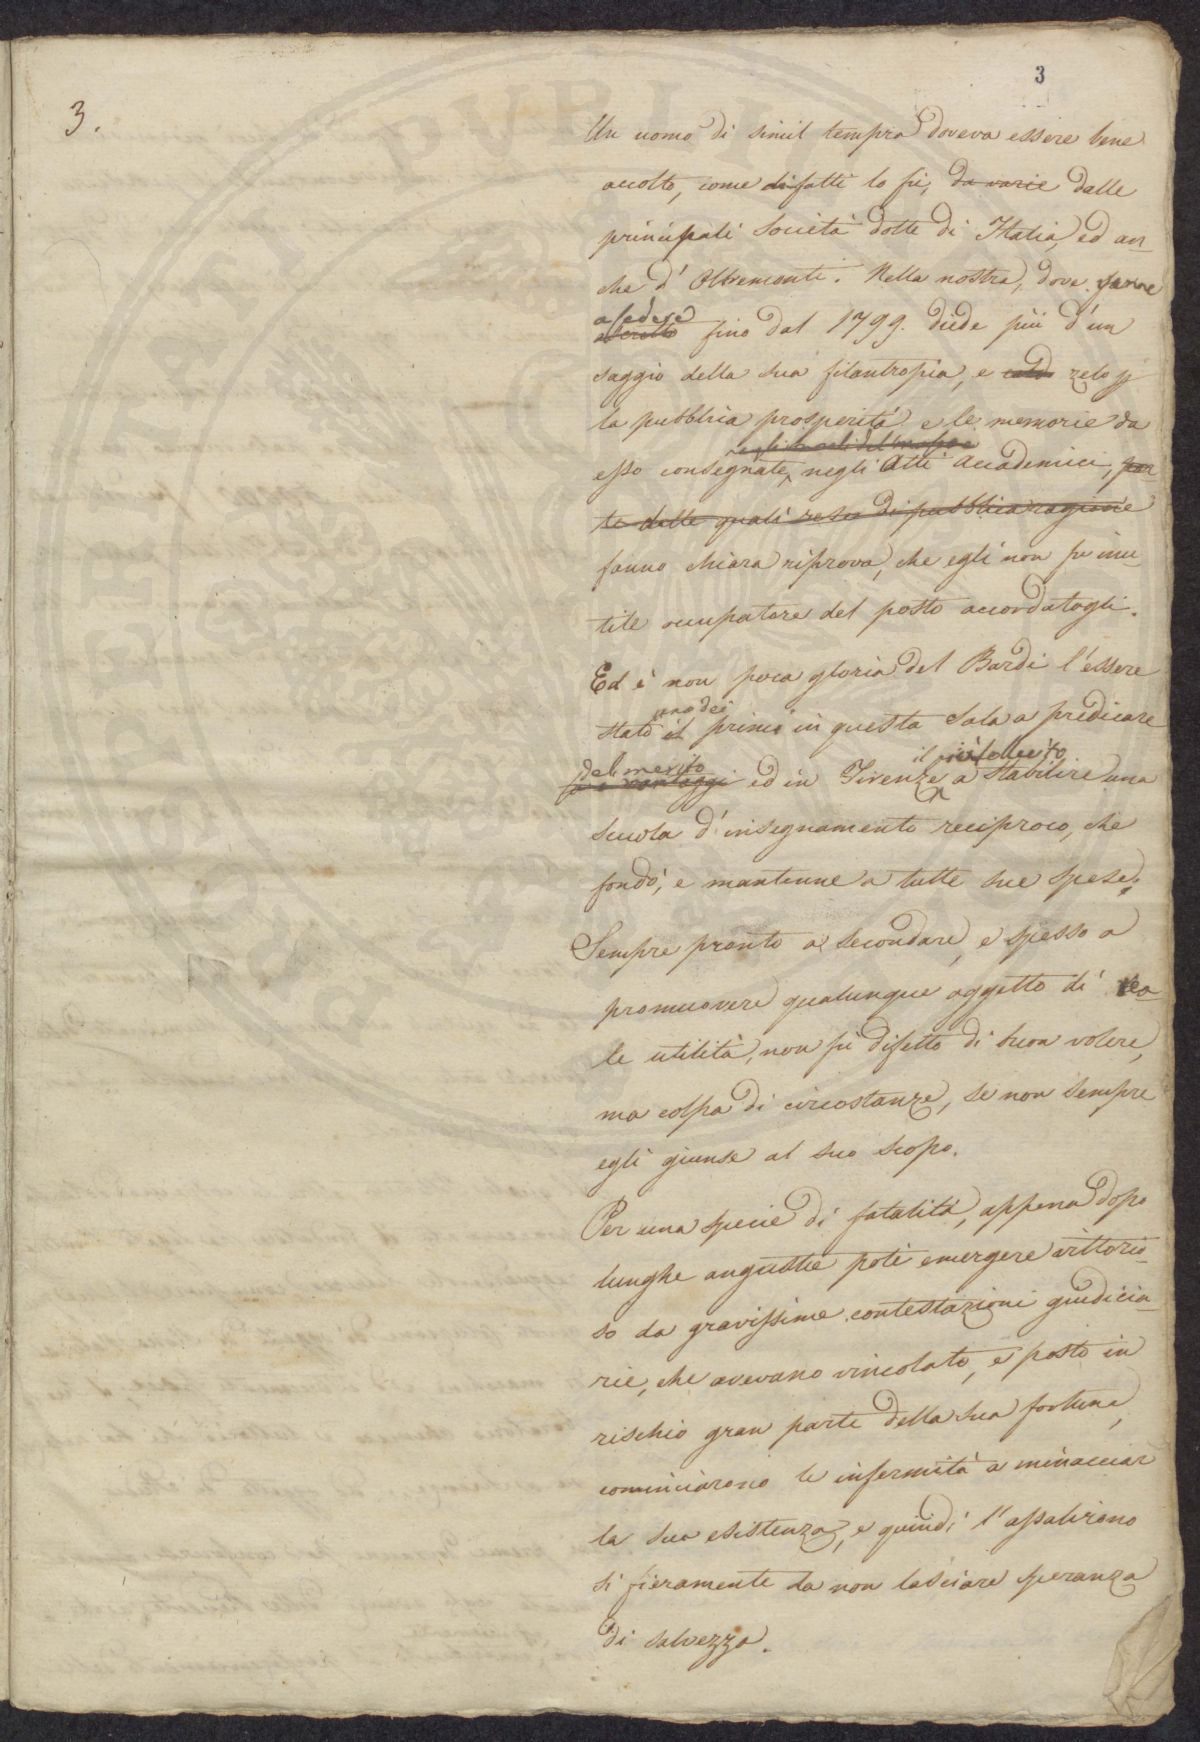 3
3.
Un uomo di simil tempra doveva essere bene
accolto, come difatti lo fù, da varie dalle
principali Società dotte di Italia, ed an-
che d'Oltremonti. Nella nostra, dove venne
a sedere
ascritto fino dal 1799. diede più d'un
saggio della sua filantropia, e caldo zelo p
la pubblica prosperità e le memorie da
negli
esso consegnate, negli Atti Accademici, par-
te delle quali rese di pubblica ragione
fanno chiara riprova, che egli non fu inu-
tile occupatore del posto accordatogli.
Ed è non poca gloria del Bardi l'essere
uno dei
stato il primi in questa Sala a predicare
del merito il
vantaggi ed in Firenze a stabilire una
scuola d'insegnamento reciproco, che
fondò, e mantenne a tutte sue spese.
Sempre pronto a secondare, e spesso a
promuovere qualunque oggetto di rea-
le utilità, non fù difetto di buon volere,
ma colpa di circostanze, se non sempre
egli giunse al suo scopo.
Per una specie di fatalità, appena dopo
lunghe angustie potè emergere vittorio-
so da gravissime contestazioni giudicia-
rie, che avevano vincolato, e posto in
rischio gran parte della sua fortuna,
cominciarono le infermità a minacciar
la sua esistenza, e quindi l'assalirono
sì fieramente da non lasciare speranza
di salvezza.